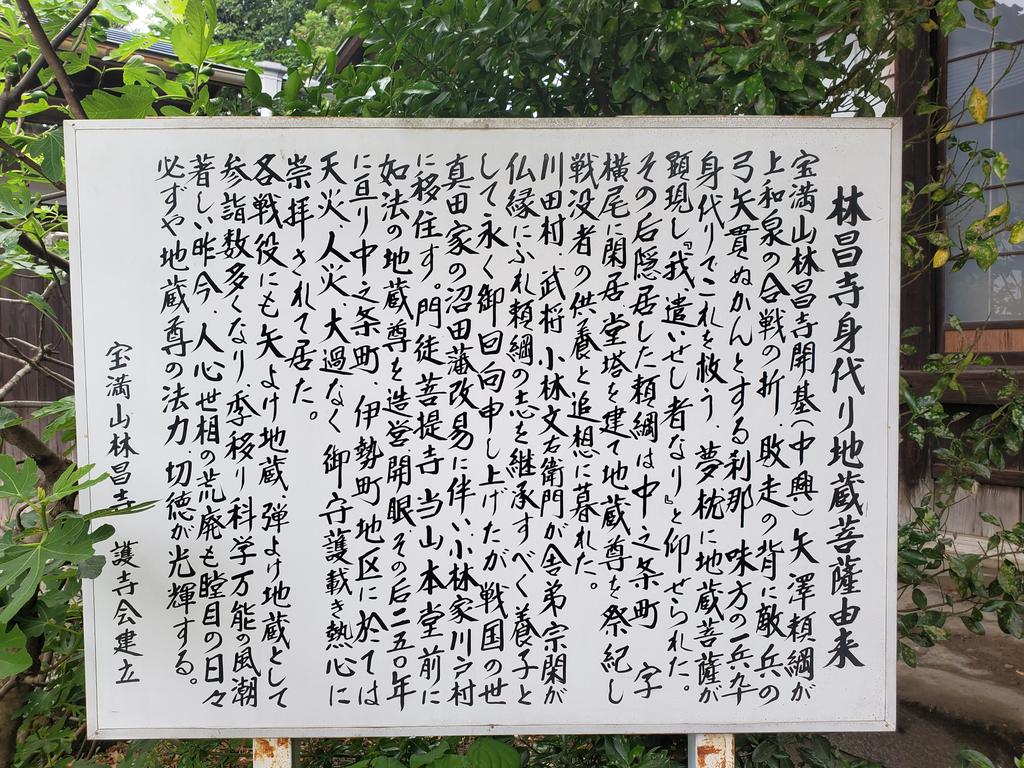 林昌寺身代り地蔵菩薩由来
宝満山林昌寺開基(中興)矢澤頼綱が
上和泉の合戦の折、敗走の背に敵兵の
弓矢貫ぬかんとする刹那、味方の一兵卆
身代りでこれを救う、夢枕に地蔵菩薩が
顕現し『我、遣いせし者なり』と仰せられた。
その后隠居した頼綱は中之条町 字
横尾に閑居、堂塔を建て地蔵尊を祭紀し
戦没者の供養と追想に暮れた。
川田村、武将、小林文右衛門が舎弟宗閑が
仏縁にふれ頼綱の志を継承すべく養子と
して永く御回向申し上げたが、戦国の世
真田家の沼田藩改易に伴い、小林家川戸村
に移住す。門徒、菩提寺、当山本堂前に
如法の地蔵尊を造営開眼、その后二五〇年
に亘り中之条町、伊勢町地区に於ては
天火、人火、大過なく御守護載き熱心に
崇拝されて居た。
各戦役にも矢よけ地蔵、弾よけ地蔵として
参詣数多くなり、季移り科学万能の風潮
著しい昨今、人心世相の荒廃も瞠目の日々
必ずや地蔵尊の法力、切徳が光輝する。
宝満山林昌寺 護寺会建立